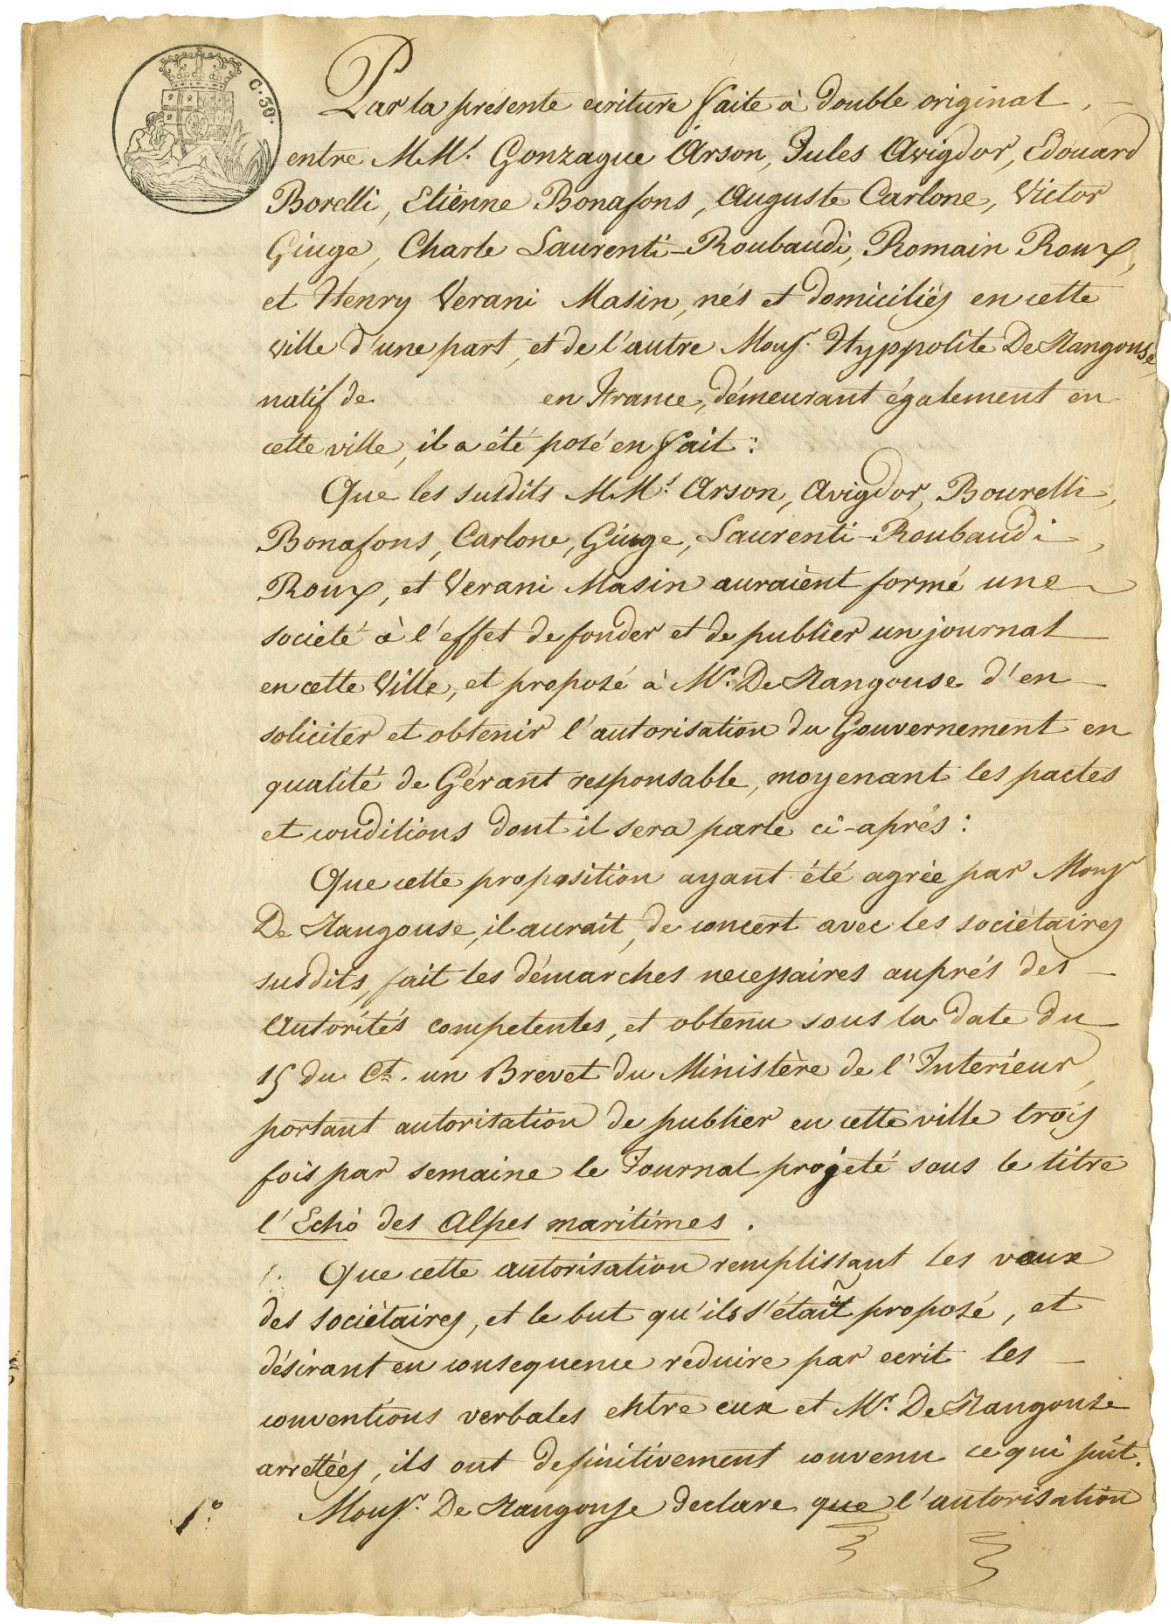 C. 50.
Par la présente écriture faite à double original,
entre MM.rs Gonzague Arson, Jules Avigdor, Edouard
Borelli, Etienne Bonafons, Auguste Carlone, Victor
Giuge, Charle Laurenti-Roubaudi, Romain Roux,
et Henry Verani Masin, nés et domiciliés en cette
ville d'une part, et de l'autre Mons.r Hyppolite De Rangouse,
natif de en France, démeurant également en
cette ville, il a été posé en fait :
Que les susdits MM.rs Arson, Avigdor, Bourelli,
Bonafons, Carlone, Giuge, Laurenti-Roubaudi,
Roux, et Verani Masin auraient formé une
societé à l'effet de fonder et de publier un journal
en cette Ville, et proposé à Mr. De Rangouse d'en
soliciter et obtenir l'autorisation du Gouvernement en
qualité de Gérant responsable, moyenant les pactes
et conditions dont il sera parlé ci-aprés :
Que cette proposition ayant été agrée par Monsr
De Rangouse, il aurait, de concert avec les sociètaires
susdits, fait les démarches necessaires auprés des
Autorités competentes, et obtenu sous la date du
15 du Ct. un Brevet du Ministère de l'Interieur,
portant autorisation de publier en cette ville trois
fois par semaine le Journal projeté sous le titre
l'Echo des Alpes maritimes.
Que cette autorisation remplissant les vœux
des sociètaires, et le but qu'ils s'était proposé, et
désirant en consequence reduire par ecrit les
conventions verbales entre eux et Mr. De Rangouse
arrettées, ils ont definitivement convenu ce qui suit.
1.o Monsr. De Rangouse declare que l'autorisation